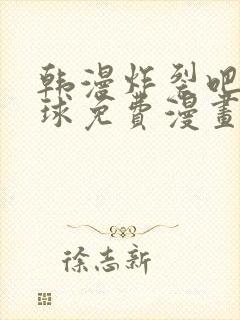 韩漫炸裂吧
球免費漫畫
徐志新